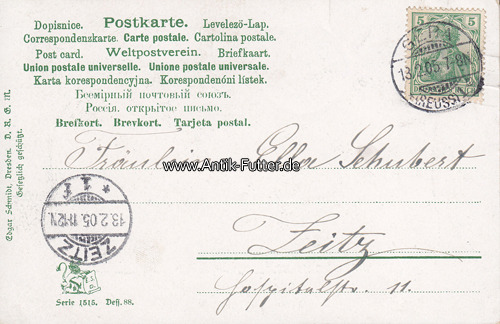 Dopisnice. Postkarte. Levelező-Lap.
Correspondenzkarte. Carte postale. Cartolina postale.
Post card. Weltpostverein. Briefkaart.
Union postale universelle. Unione postale universale.
Karta korespondencyjna. Korespondenóni lístek.
Всемірный почтовый союзъ.
Россія. открытое письмо.
Brefkort. Brevkort. Tarjeta postal.
5 5
GERA
13.2.05. 7-8
(REUSS)
Fräulein Ella Schubert
www.Antik-Futter.de
Zeitz
Hospitalstr. 11.
* 1 f
13.2.05.11-12V.
ZEITZ
Edgar Schmidt, Dresden. D. R. G. M.
Gesetzlich geschützt.
Serie 1515. Dess. 88.